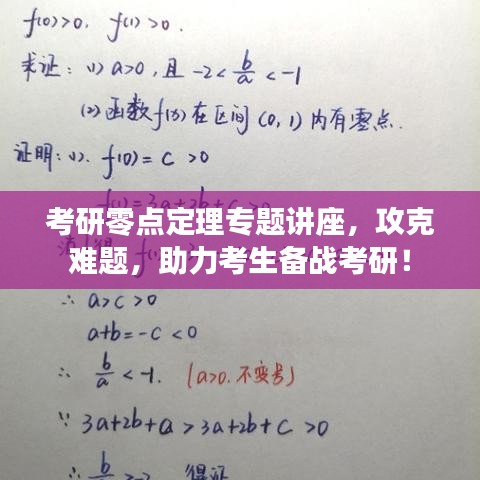 f(0)>0, f(1)>0.
求证: (1) a>0, 且 -2<b/a<-1
(2) 函数f(x)在区间(0,1)内有零点.
证明: (1). f(0)=c>0
考研零点定理专题讲座，攻克
难题，助力考生备战考研！
∴ a>c>0
a+b=-c<0
∴ b/a<-1. (a>0.不变号)
∵ 3a+2b+a>3a+2b+c>0
∴ b/a>-2 得证